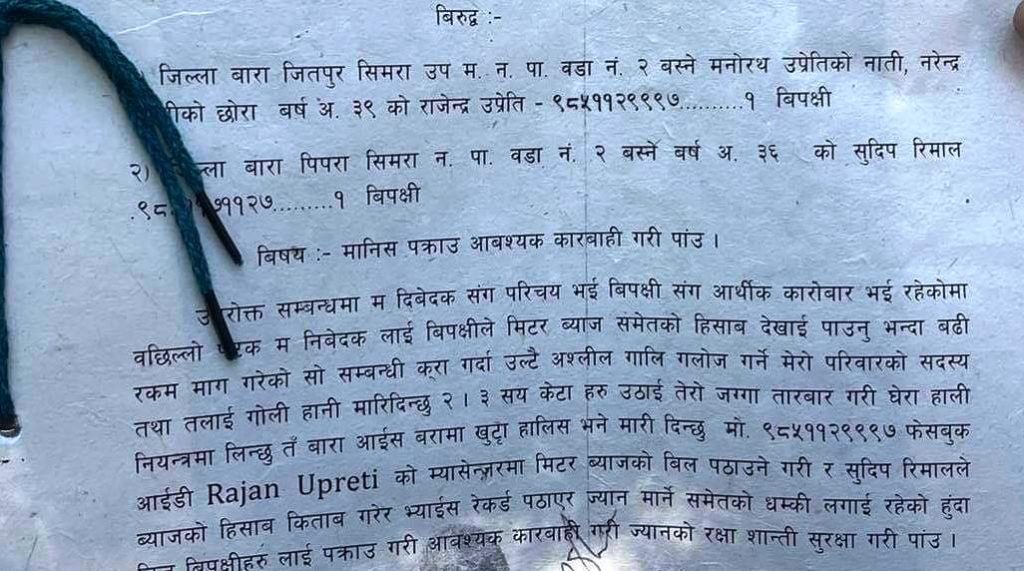 बिरुद्ध :-
जिल्ला बारा जितपुर सिमरा उप म. न. पा. वडा नं. २ बस्ने मनोरथ उप्रेतिको नाती, नरेन्द्र
को छोरा बर्ष अ. ३९ को राजेन्द्र उप्रेति - ९८५११२९९९७..........१ बिपक्षी
२) बारा पिपरा सिमरा न. पा. वडा नं. २ बस्ने बर्ष अ. ३६ को सुदिप रिमाल
..........१ बिपक्षी
बिषय :- मानिस पक्राउ आबश्यक कारबाही गरी पांउ ।
सम्बन्धमा म दिबेदक संग परिचय भई बिपक्षी संग आर्थीक कारोबार भई रहेकोमा
वछिल्लो म निबेदक लाई बिपक्षीले मिटर ब्याज समेतको हिसाब देखाई पाउनु भन्दा बढी
रकम माग गरेको सो सम्बन्धी क्‌रा गर्दा उल्टै अश्लील गालि गलोज गर्ने मेरो परिवारको सदस्य
तथा तलाई गोली हानी मारिदिन्छु २ । ३ सय केटा हरु उठाई तेरो जग्गा तारबार गरी घेरा हाली
नियन्त्रमा लिन्छु तँ बारा आईस बरामा खुट्टा हालिस भने मारी दिन्छु मो. ९८५११२९९९७ फेसबुक
आईडी Rajan Upreti को म्यासेन्ज़रमा मिटर ब्याजको बिल पठाउने गरी र सुदिप रिमालले
ब्याजको हिसाब किताब गरेर भ्याईस रेकर्ड पठाएर ज्यान मार्ने समेतको धम्की लगाई रहेको हुंदा
बिपक्षीहरु लाई पक्राउ गरी आबश्यक कारबाही गरी ज्यानको रक्षा शान्ती सुरक्षा गरी पांउ ।